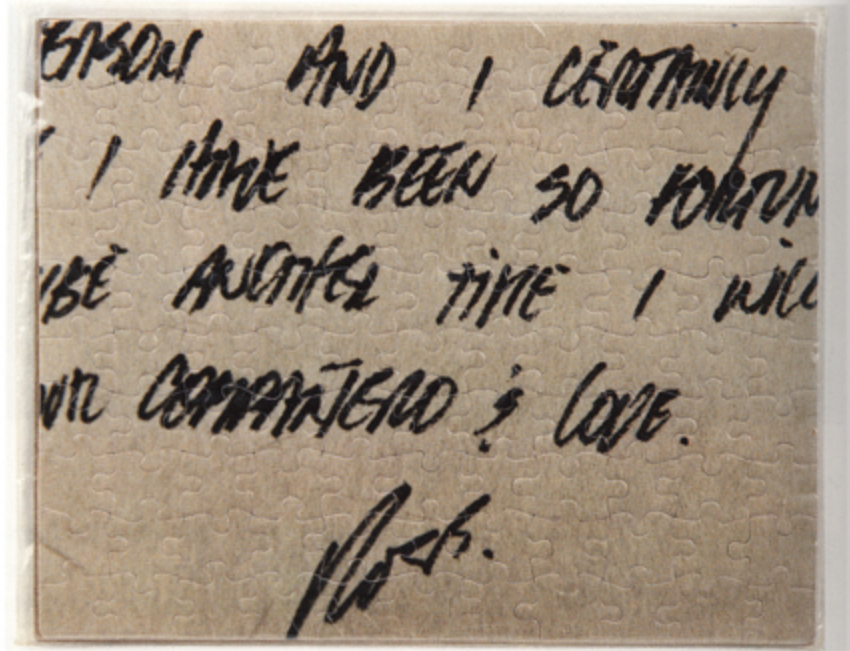 ERSON AND I CERTAINLY
I HAVE BEEN SO FORTUN
BE ANOTHER TIME I WILL
OUR COMPAÑERO & LOVE.